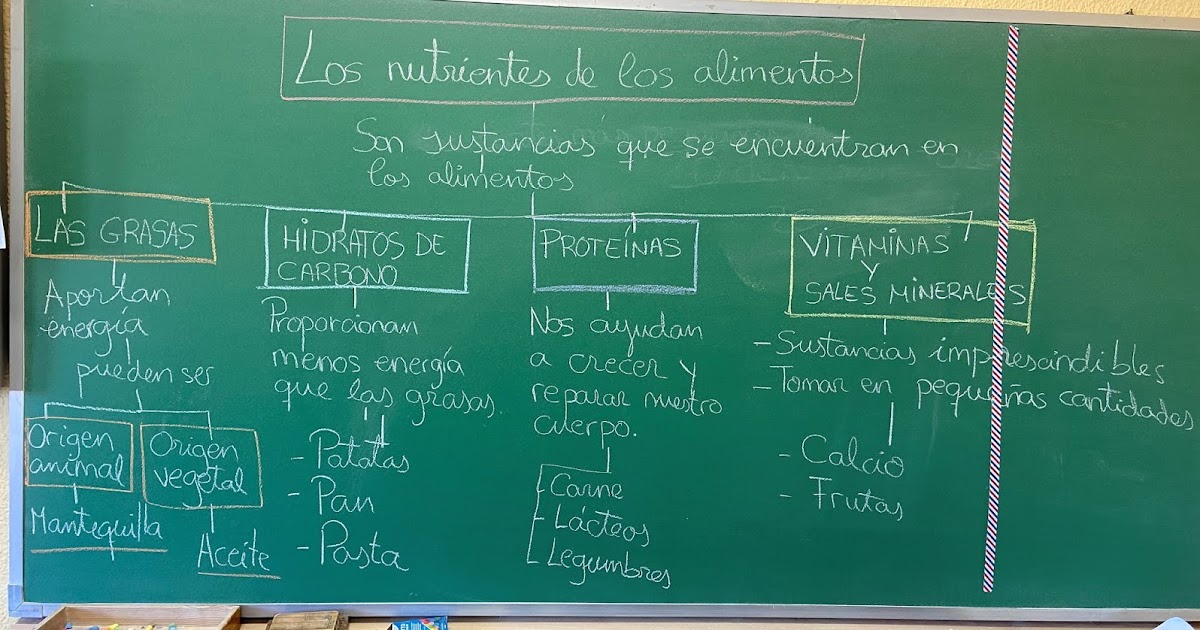 Los nutrientes de los alimentos
Son sustancias que se encuentran en
los alimentos
LAS GRASAS
Aportan
energía
pueden ser
Origen
animal
Mantequilla
Origen
vegetal
Aceite
HIDRATOS DE
CARBONO
Proporcionan
menos energía
que las grasas.
- Patatas
- Pan
- Pasta
PROTEÍNAS
Nos ayudan
a crecer y
reparar nuestro
cuerpo.
- Carne
- Lácteos
- Legumbres
VITAMINAS
Y
SALES MINERALES
- Sustancias imprescindibles
- Tomar en pequeñas cantidades
- Calcio
- Frutas